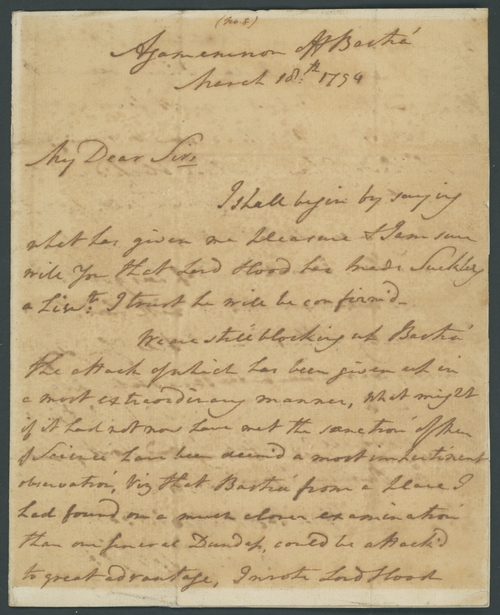 (No. 8)
Agamemnon off Bastia
March 18:th 1794
My Dear Sir,
I shall begin by saying
what has given me pleasure & I am sure
will You that Lord Hood has made Suckling
a Lieut: I trust he will be confirm'd -
We are still blocking up Bastia
the attack of which has been given up in
a most extraordinary manner, what might
if it had not now have met the sanction of Men
of Science have been deem'd a most impertinent
observation, Viz that Bastia from a place I
had found on a much closer examination
than our General Dundas, could be attack'd
to great advantage, I wrote Lord Hood